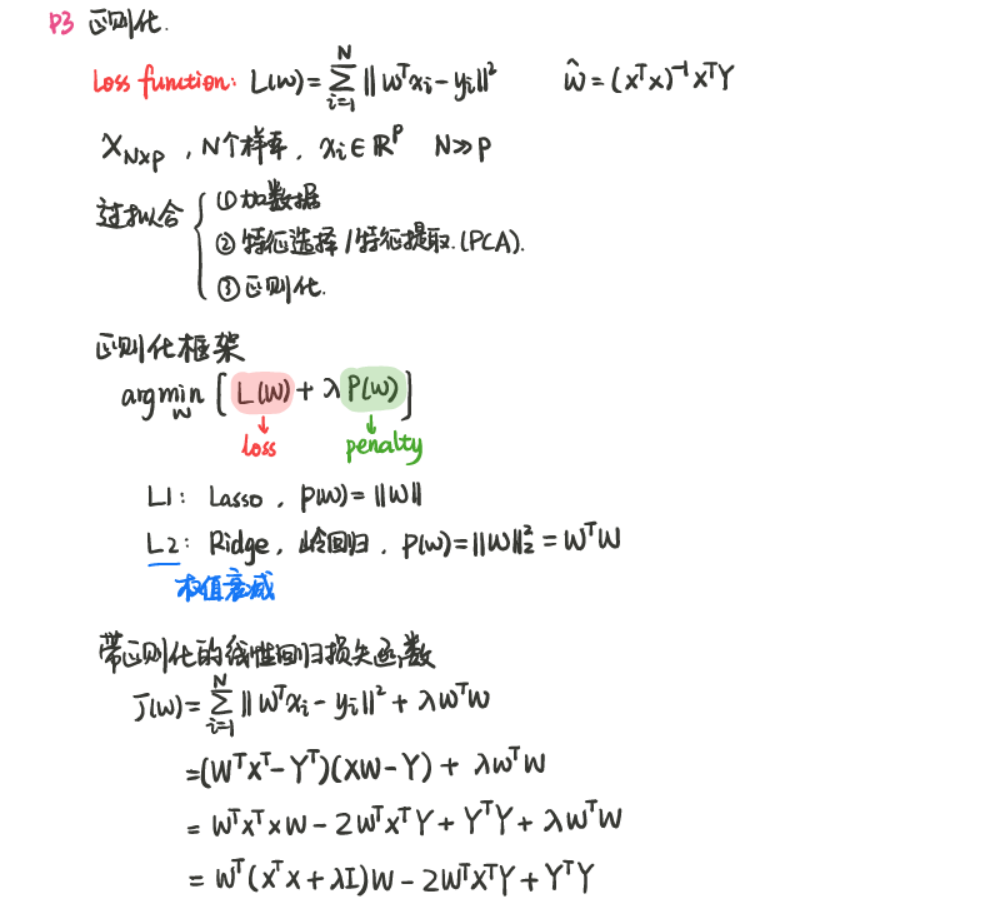 P3 正则化.
Loss function: L(w) = ∑_{i=1}^{N} ‖wᵀxᵢ - yᵢ‖² ŵ = (xᵀx)⁻¹xᵀY
X_{N×p} , N个样本, xᵢ ∈ ℝᵖ N≫p
过拟合 { ①加数据
②特征选择/特征提取.(PCA).
③正则化.
正则化框架
argmin_w [L(w) + λP(w)]
loss penalty
L1: Lasso, p(w) = ‖w‖
L2: Ridge, 岭回归, p(w) = ‖w‖₂² = wᵀw
权值衰减
带正则化的线性回归损失函数
J(w) = ∑_{i=1}^{N} ‖wᵀxᵢ - yᵢ‖² + λwᵀw
= (wᵀxᵀ - Yᵀ)(xw - Y) + λwᵀw
= wᵀxᵀxw - 2wᵀxᵀY + YᵀY + λwᵀw
= wᵀ(xᵀx + λI)w - 2wᵀxᵀY + YᵀY